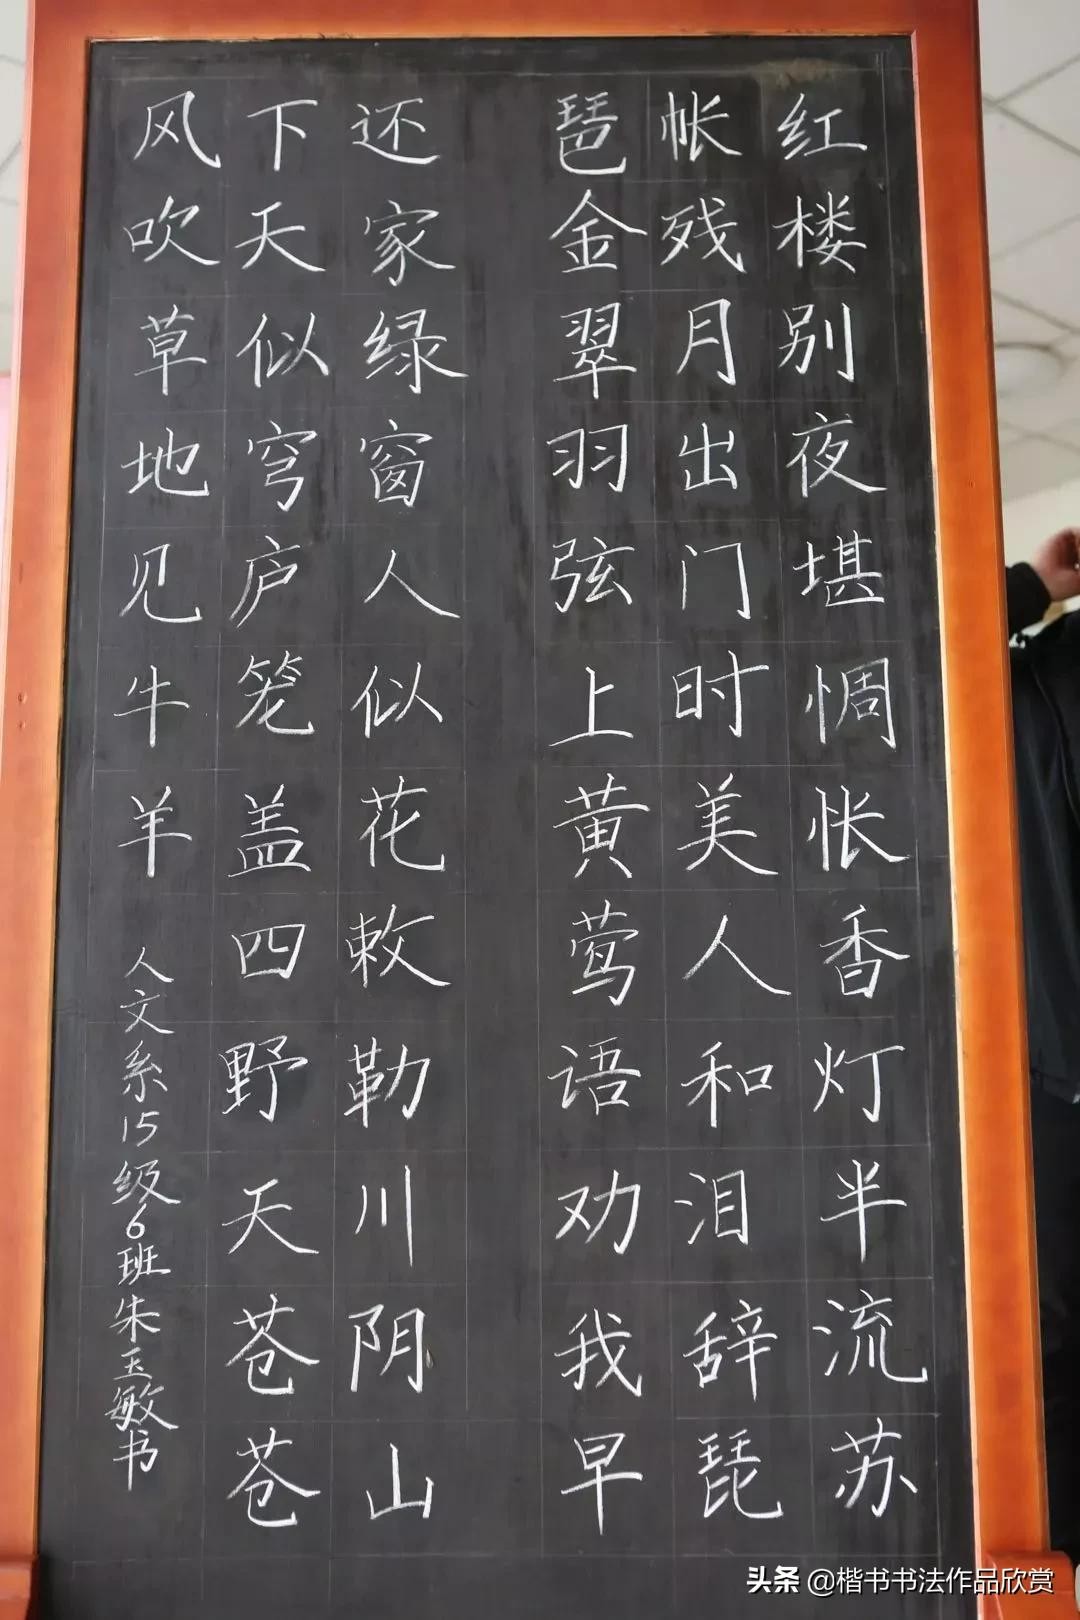 红楼别夜堪惆怅香灯半流苏
帐残月出门时美人和泪辞琵
琶金翠羽弦上黄莺语劝我早
还家绿窗人似花敕勒川阴山
下天似穹庐笼盖四野天苍苍
风吹草地见牛羊
人文系15级6班朱玉敏书
头条 @楷书书法作品欣赏